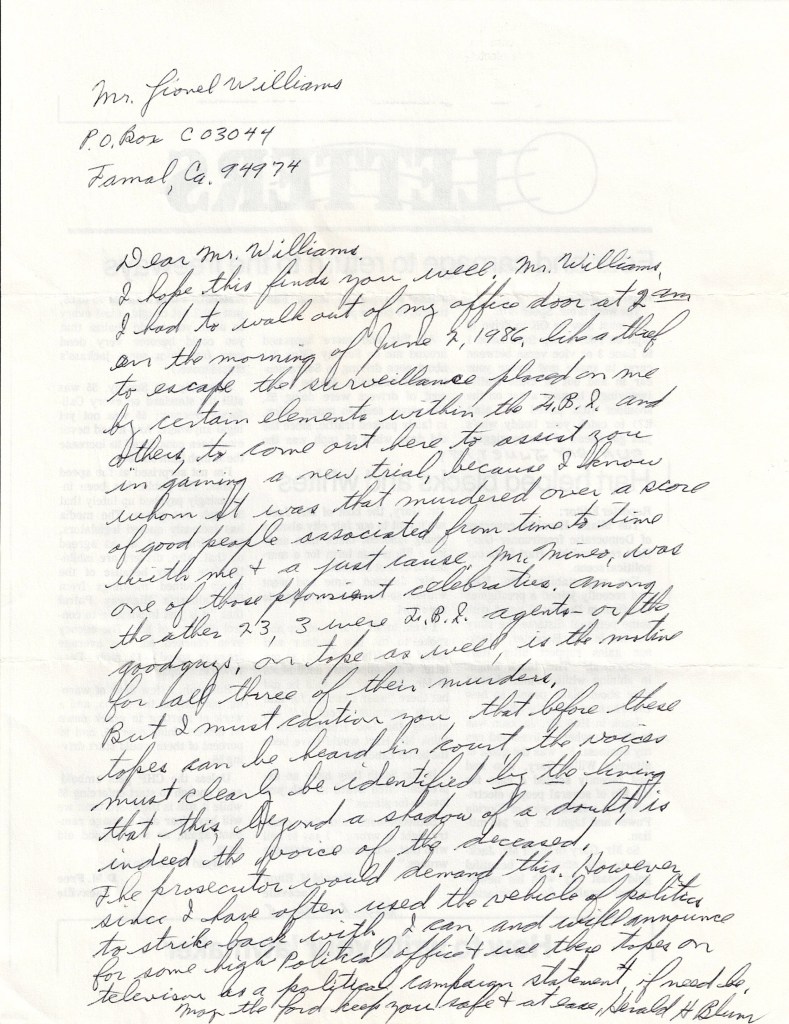 Mr. Lionel Williams
P.O. Box C 03044
Tamal, Ca. 94974
LETTERS
Dear Mr. Williams.
I hope this finds you well, Mr. Williams,
I had to walk out of my office door at 2 am
on the morning of June 2, 1986, like a thief
to escape the surveillance placed on me
by certain elements within the F.B.I. and
Others, to come out here to assist you
in gaining a new trial, because I know
whom it was that murdered over a score
of good people associated from time to time
with me, + a just cause. Mr. Mineo, was
one of those promisint celebraties. among
the other 23, 3 were F.B.I. agents - or the
goodguys, on tape as well, is the motive
for all three of their murders.
But I must caution you, that before these
tapes can be heard in court, the voices
must clearly be identified by the living
that this, beyond a shadow of a doubt, is
indeed the voice of the deceased.
The prosecutor would demand this. However
since I have often used the vehicle of politics
to strike back with, I can, and will announce
for some high Political office + use these tapes on
televison as a political campaign statement, if need be.
May the ford keep you safe + at ease, Herald H Blum